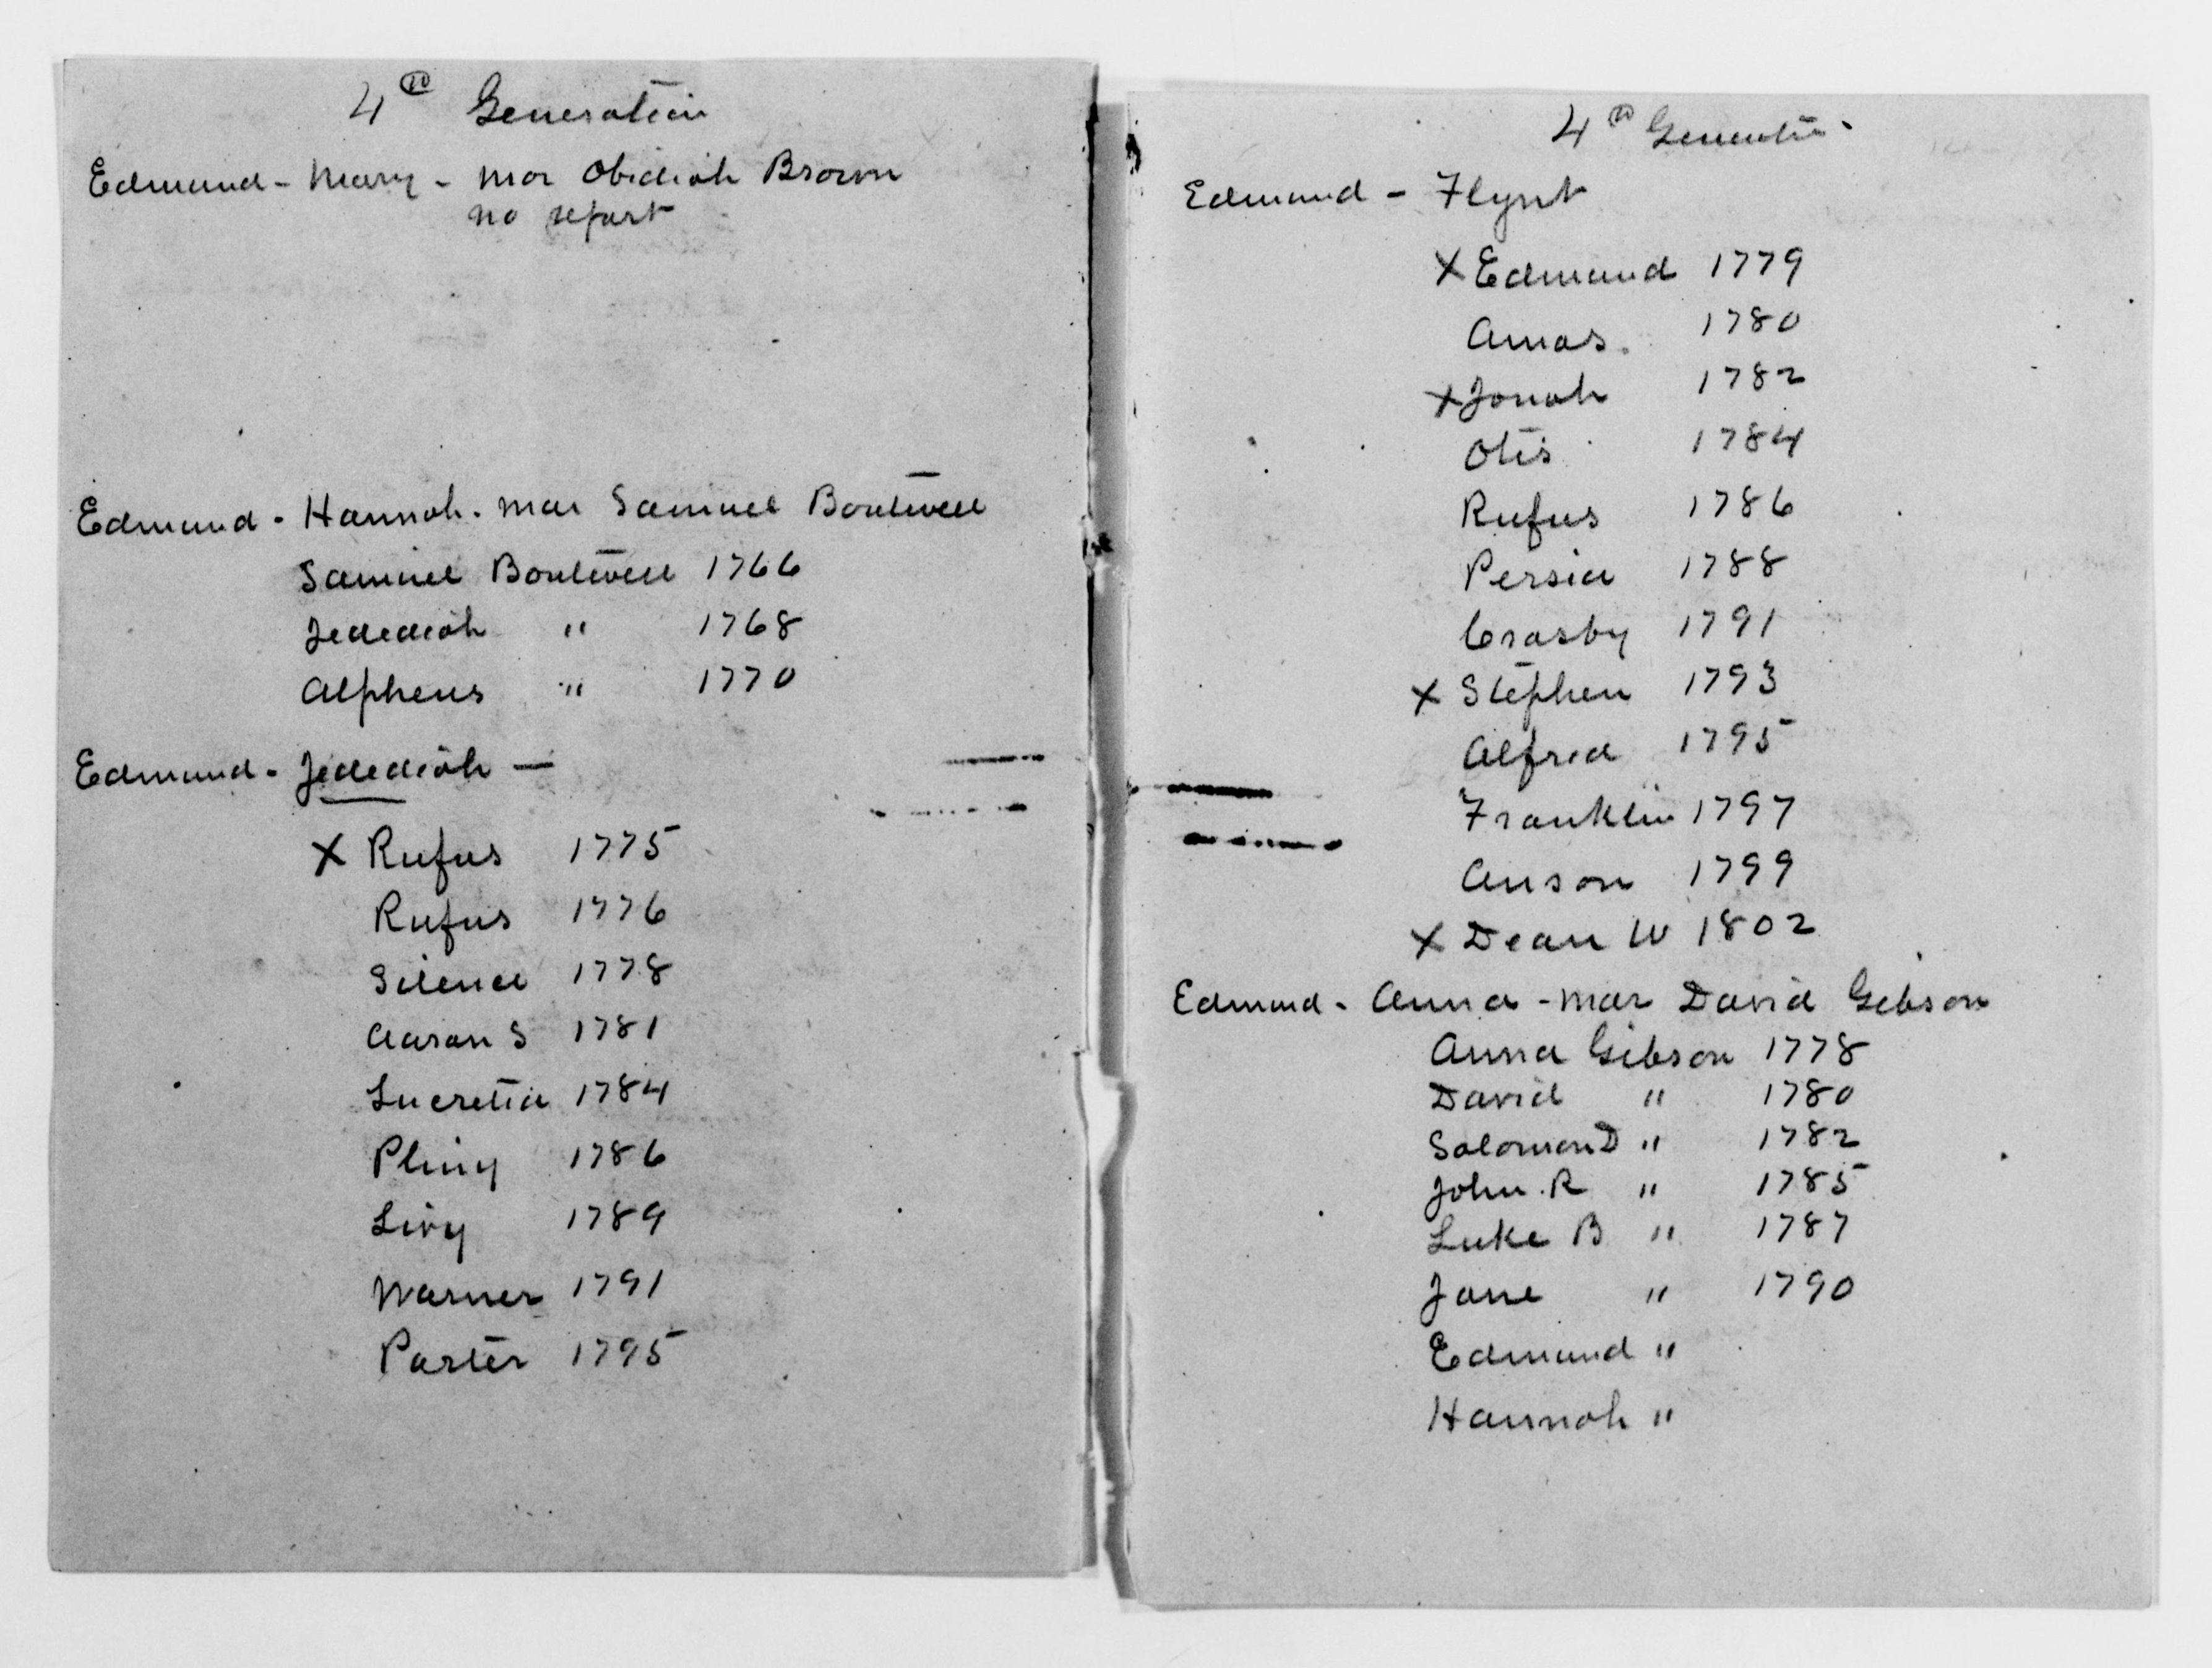 4th Generation
Edmund - Mary - mar Obidiah Brown
no report
Edmund - Hannah - mar Samuel Boutwell
Samuel Boutwell 1766
Jedediah " 1768
Alpheus " 1770
Edmund - Jedediah —
X Rufus 1775
Rufus 1776
Silence 1778
Aaron S 1781
Lucretia 1784
Pliny 1786
Livy 1789
Warner 1791
Porter 1795
4th Generation
Edmund - Flynt
X Edmund 1779
Amos 1780
X Jonah 1782
Otis 1784
Rufus 1786
Persia 1788
Crosby 1791
X Stephen 1793
Alfred 1795
Franklin 1797
Anson 1799
X Dean W 1802
Edmund - Anna - mar David Gibson
Anna Gibson 1778
David " 1780
Solomon D " 1782
John R " 1785
Luke B " 1787
Jane " 1790
Edmund "
Hannah "